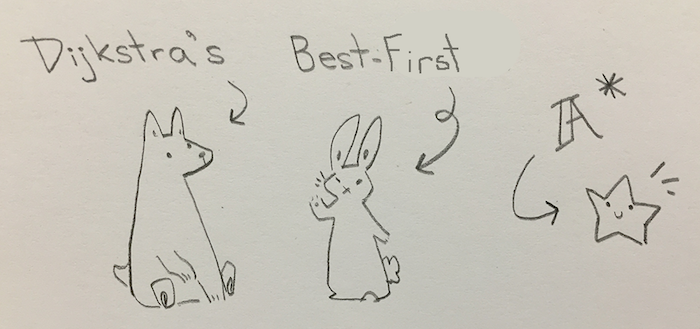 Dijkstra's
Best-First
A*